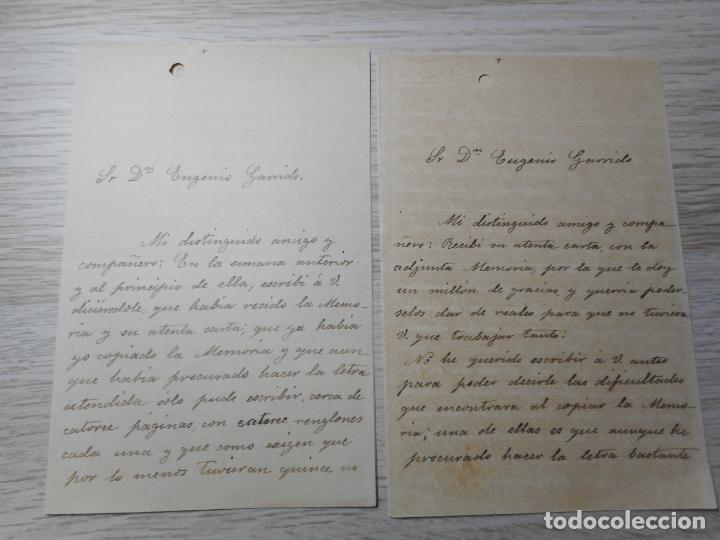 Sr Dⁿ Eugenio Garrido.
Mi distinguido amigo y
compañero: En la semana anterior
y al principio de ella, escribí á V.
diciéndole, que había recido la Memo-
ria y su atenta carta; que ya había
yo copiado la Memoria y que aun-
que había procurado hacer la letra
estendida sólo pude escribir, cerca de
catorce páginas, con catorce renglones
cada una y que como exigen que
por lo menos tuvieran quince no
Sr Dⁿ Eugenio Garrido
Mi distinguido amigo y compa-
ñero: Recibí su atenta carta, con la
adjunta Memoria, por la que le doy
un millón de gracias, y querría poder-
selos dar de reales para que no tuviera
V. que trabajar tanto:
No he querido escribir á V. antes
para poder decirle las dificultades
que encontrara al copiar la Memo-
ria; una de ellas es que aunque he
procurado hacer la letra bastante
todocoleccion